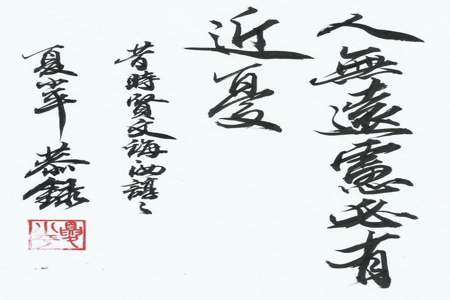 人無遠慮必有
近憂
昔時賢文誨汝諄々
夏小 恭錄